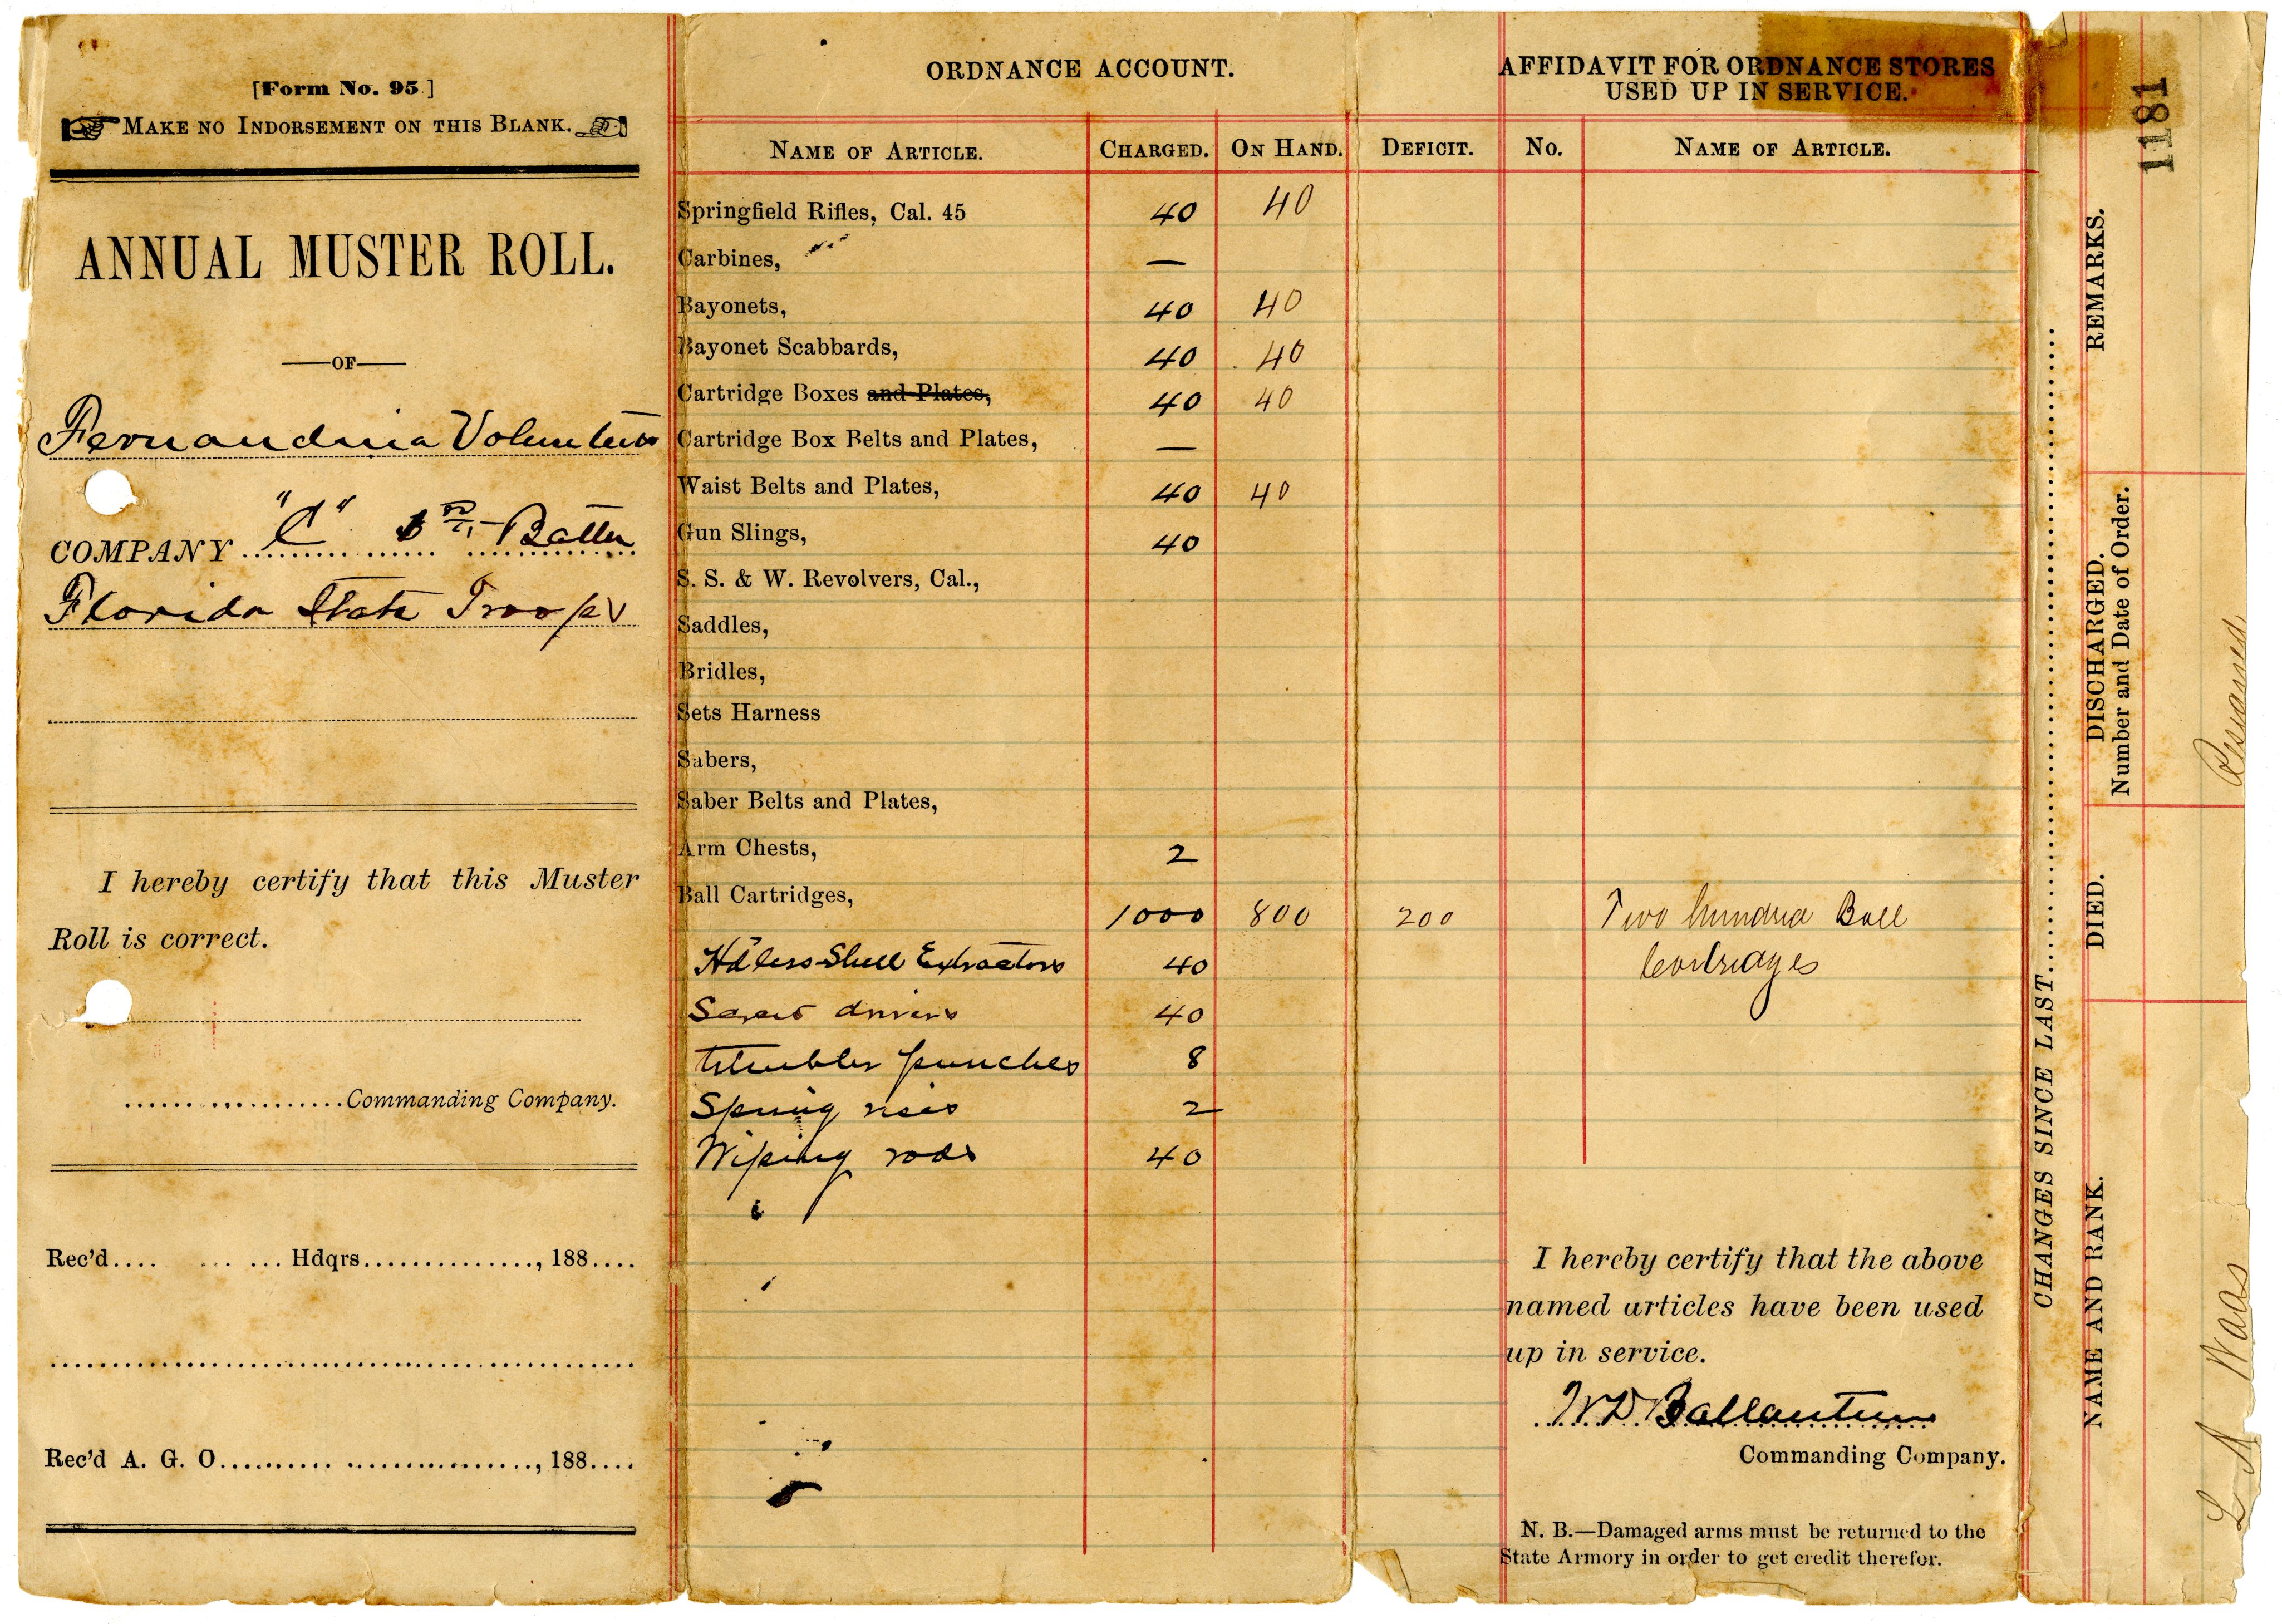 [Form No. 95.]
MAKE NO INDORSEMENT ON THIS BLANK.
ANNUAL MUSTER ROLL.
—OF—
Fernandina Volunteers
COMPANY "C" Battn
Florida State Troops
I hereby certify that this Muster
Roll is correct.
Commanding Company.
Rec'd.... ... ... Hdqrs..............., 188....
Rec'd A. G. O.............................., 188....
ORDNANCE ACCOUNT.
NAME OF ARTICLE. CHARGED. ON HAND. DEFICIT.
Springfield Rifles, Cal. 45 40 40
Carbines, —
Bayonets, 40 40
Bayonet Scabbards, 40 40
Cartridge Boxes and Plates, 40 40
Cartridge Box Belts and Plates, —
Waist Belts and Plates, 40 40
Gun Slings, 40
S. S. & W. Revolvers, Cal.,
Saddles,
Bridles,
Sets Harness
Sabers,
Saber Belts and Plates,
Arm Chests, 2
Ball Cartridges, 1000 800 200
Hdless Shell Extractors 40
Screw drivers 40
punches 8
Spring vices 2
Wiping rods 40
AFFIDAVIT FOR ORDNANCE STORES
USED UP IN SERVICE.
No. NAME OF ARTICLE.
Two hundred Ball
Cartridges
I hereby certify that the above
named articles have been used
up in service.
W D Ballantine
Commanding Company.
N. B.—Damaged arms must be returned to the
State Armory in order to get credit therefor.
CHANGES SINCE LAST
NAME AND RANK. DIED. DISCHARGED. REMARKS.
Number and Date of Order.
1181
L A Waas Resigned